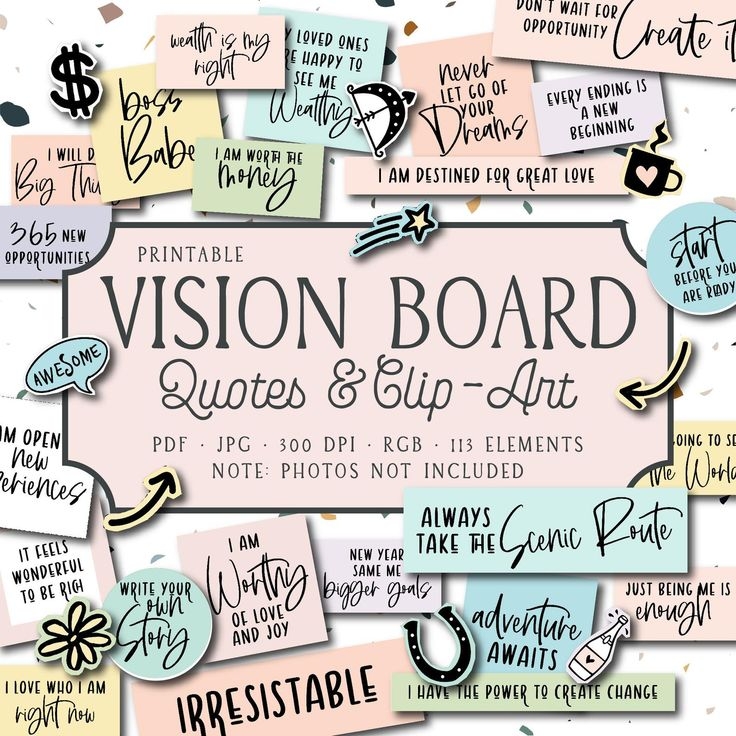 DON'T WAIT FOR
OPPORTUNITY
Create it
wealth is my
right
LOVED ONES
HAPPY TO
SEE ME
Wealthy
never
LET GO OF
YOUR
Dreams
EVERY ENDING IS
A NEW
BEGINNING
$
boss
Babe
I AM WORTH THE
money
I WILL
Big
I AM DESTINED FOR GREAT LOVE
365 NEW
OPPORTUNITIES
start
BEFORE YOU
ARE READY
PRINTABLE
VISION BOARD
Quotes & Clip-Art
PDF · JPG · 300 DPI · RGB · 113 ELEMENTS
NOTE: PHOTOS NOT INCLUDED
AWESOME
OPEN
new
TO SE
the World
ALWAYS
TAKE THE
Scenic Route
IT FEELS
WONDERFUL
TO BE RICH
I AM
Worthy
OF LOVE
AND JOY
NEW YEAR
SAME ME
bigger goals
WRITE YOUR
own
Story
adventure
AWAITS
JUST BEING ME IS
enough
I LOVE WHO I AM
right now
IRRESISTABLE
I HAVE THE POWER TO CREATE CHANGE